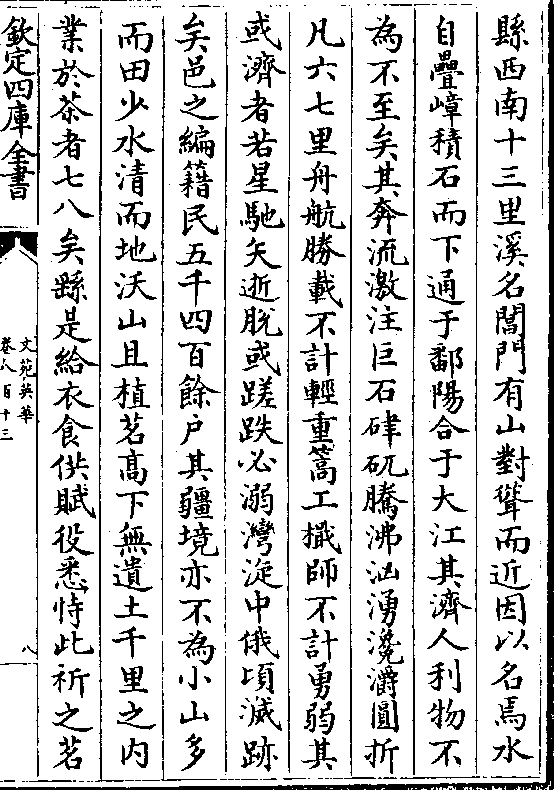 縣西南十三里溪名閶門有山對聳而近因以名焉水
自疊嶂積石而下通于鄱陽合于大江其濟人利物不
為不至矣其奔流激注巨石硉矹騰沸汹湧瀺灂圓折
凡六七里舟航勝載不計輕重篙工檝師不計勇弱其
或濟者若星馳矢逝脫或蹉跌必溺灣淀中俄頃滅跡
矣邑之編籍民五千四百餘戶其疆境亦不為小山多
而田少水清而地沃山且植茗高下無遺土千里之内
業於茶者七八矣繇是給衣食供賦役悉恃此祈之茗
欽定四庫全書
文苑英華
卷八百十三
八